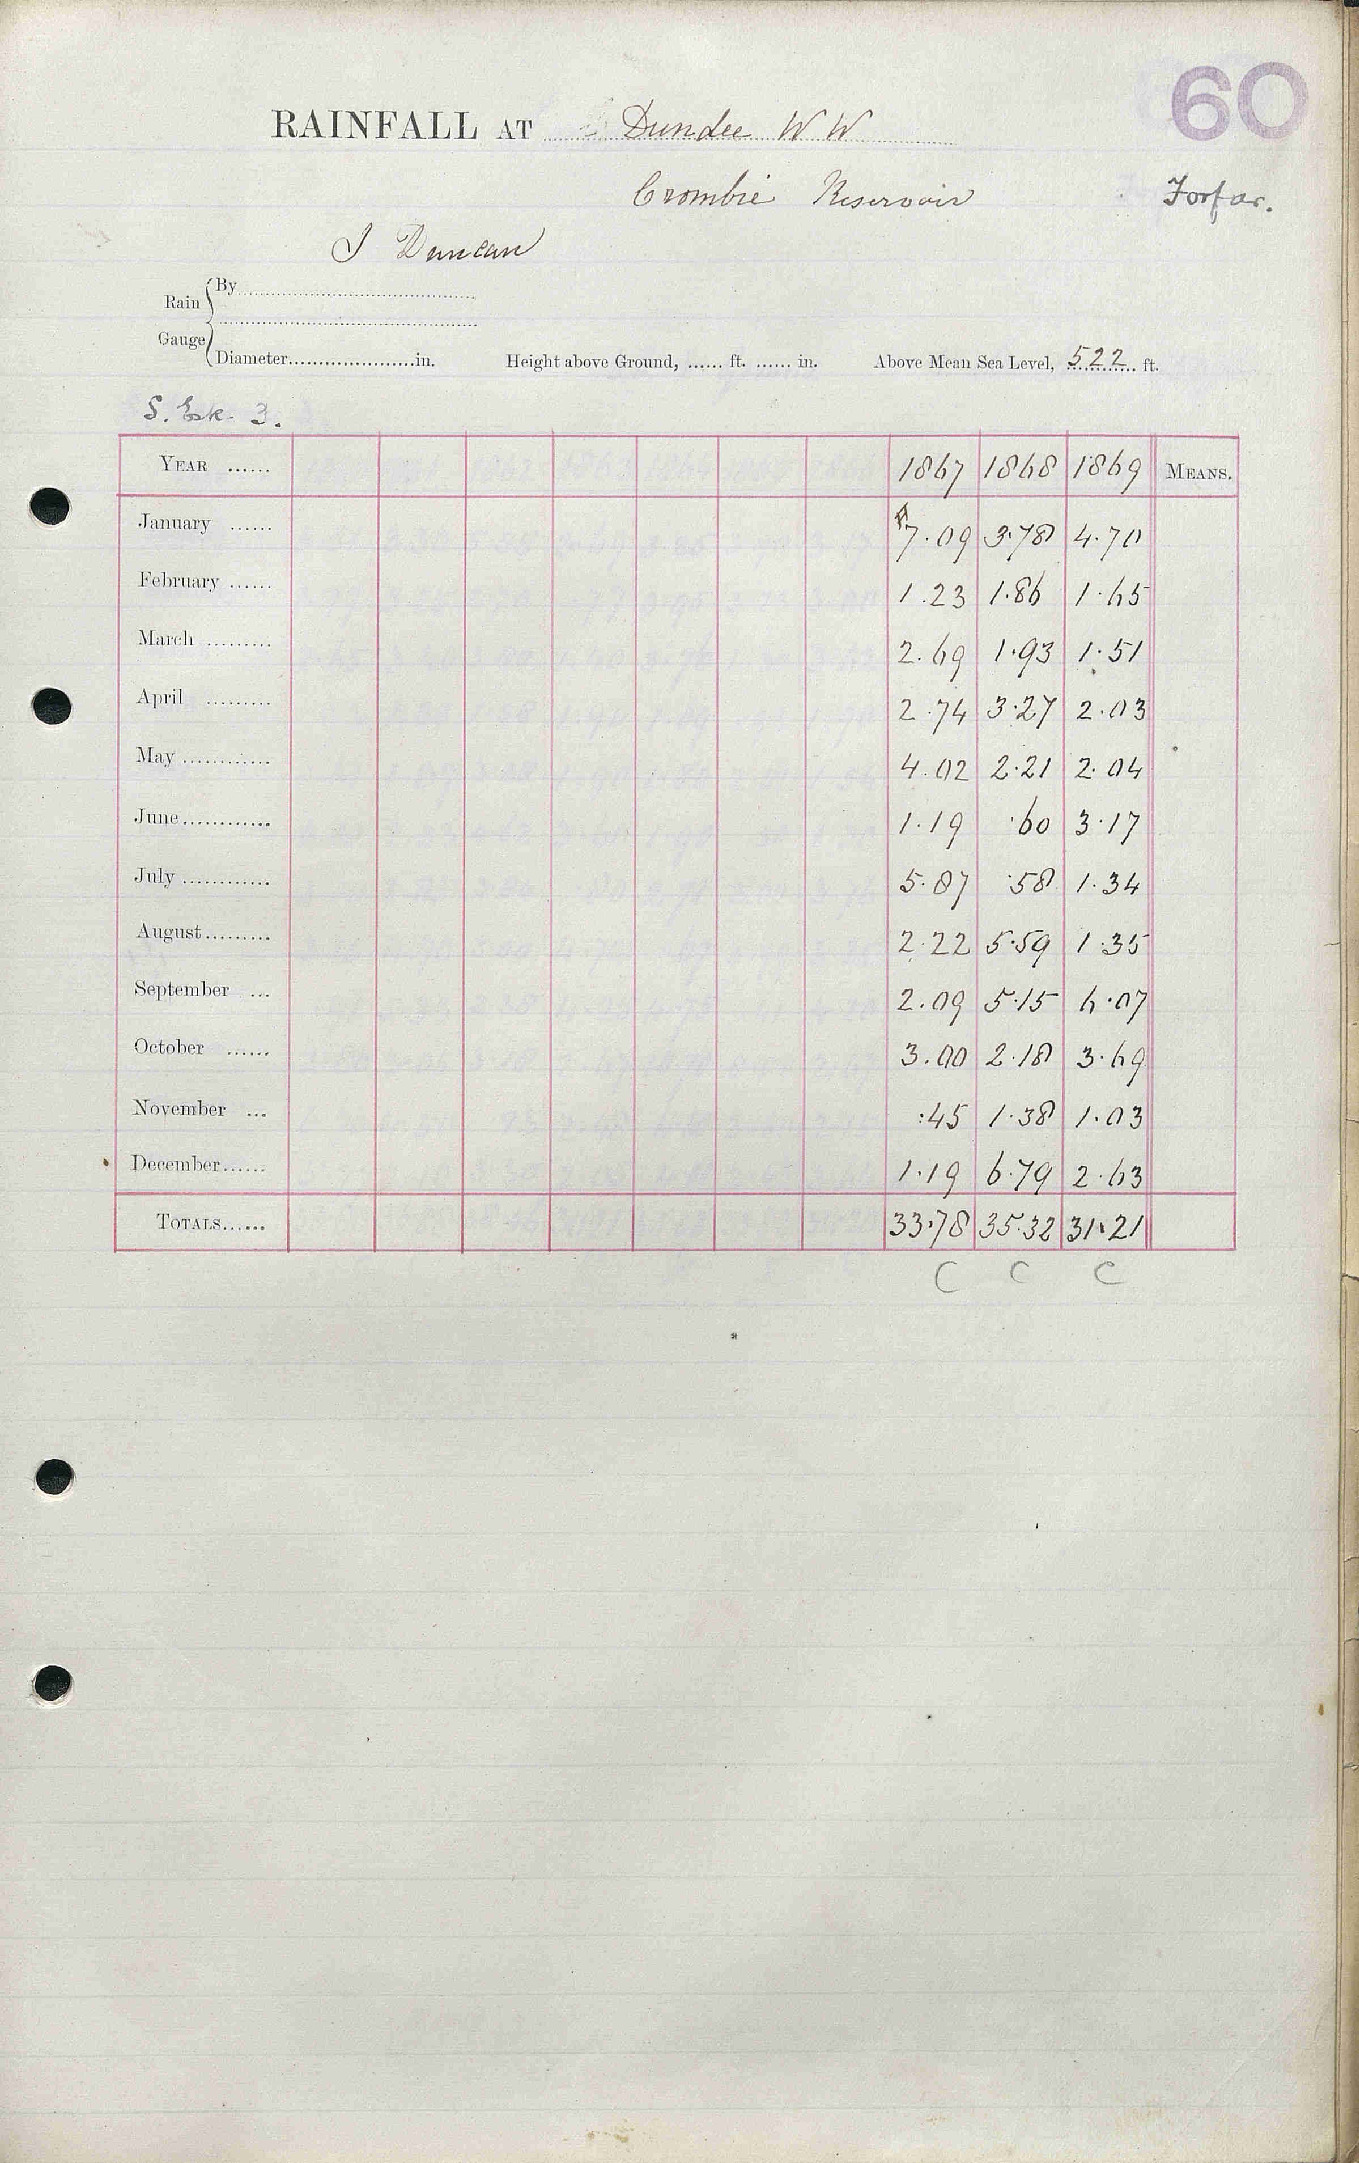 60
RAINFALL AT Dundee W W
Crombie Reservoir Forfar.
J Duncan
Rain Gauge { By..........
Diameter..........in. Height above Ground, ...... ft. ...... in. Above Mean Sea Level, 522 ft.
S. Esk. 3.
YEAR ...... 1867 1868 1869 MEANS.
January ...... 7.09 3.78 4.70
February ...... 1.23 1.86 1.65
March ......... 2.69 1.93 1.51
April ......... 2.74 3.27 2.03
May ............ 4.02 2.21 2.04
June............ 1.19 .60 3.17
July ............ 5.87 .58 1.34
August......... 2.22 5.59 1.35
September ... 2.09 5.15 6.07
October ...... 3.00 2.18 3.69
November ... .45 1.38 1.03
December...... 1.19 6.79 2.63
TOTALS...... 33.78 35.32 31.21
C C C